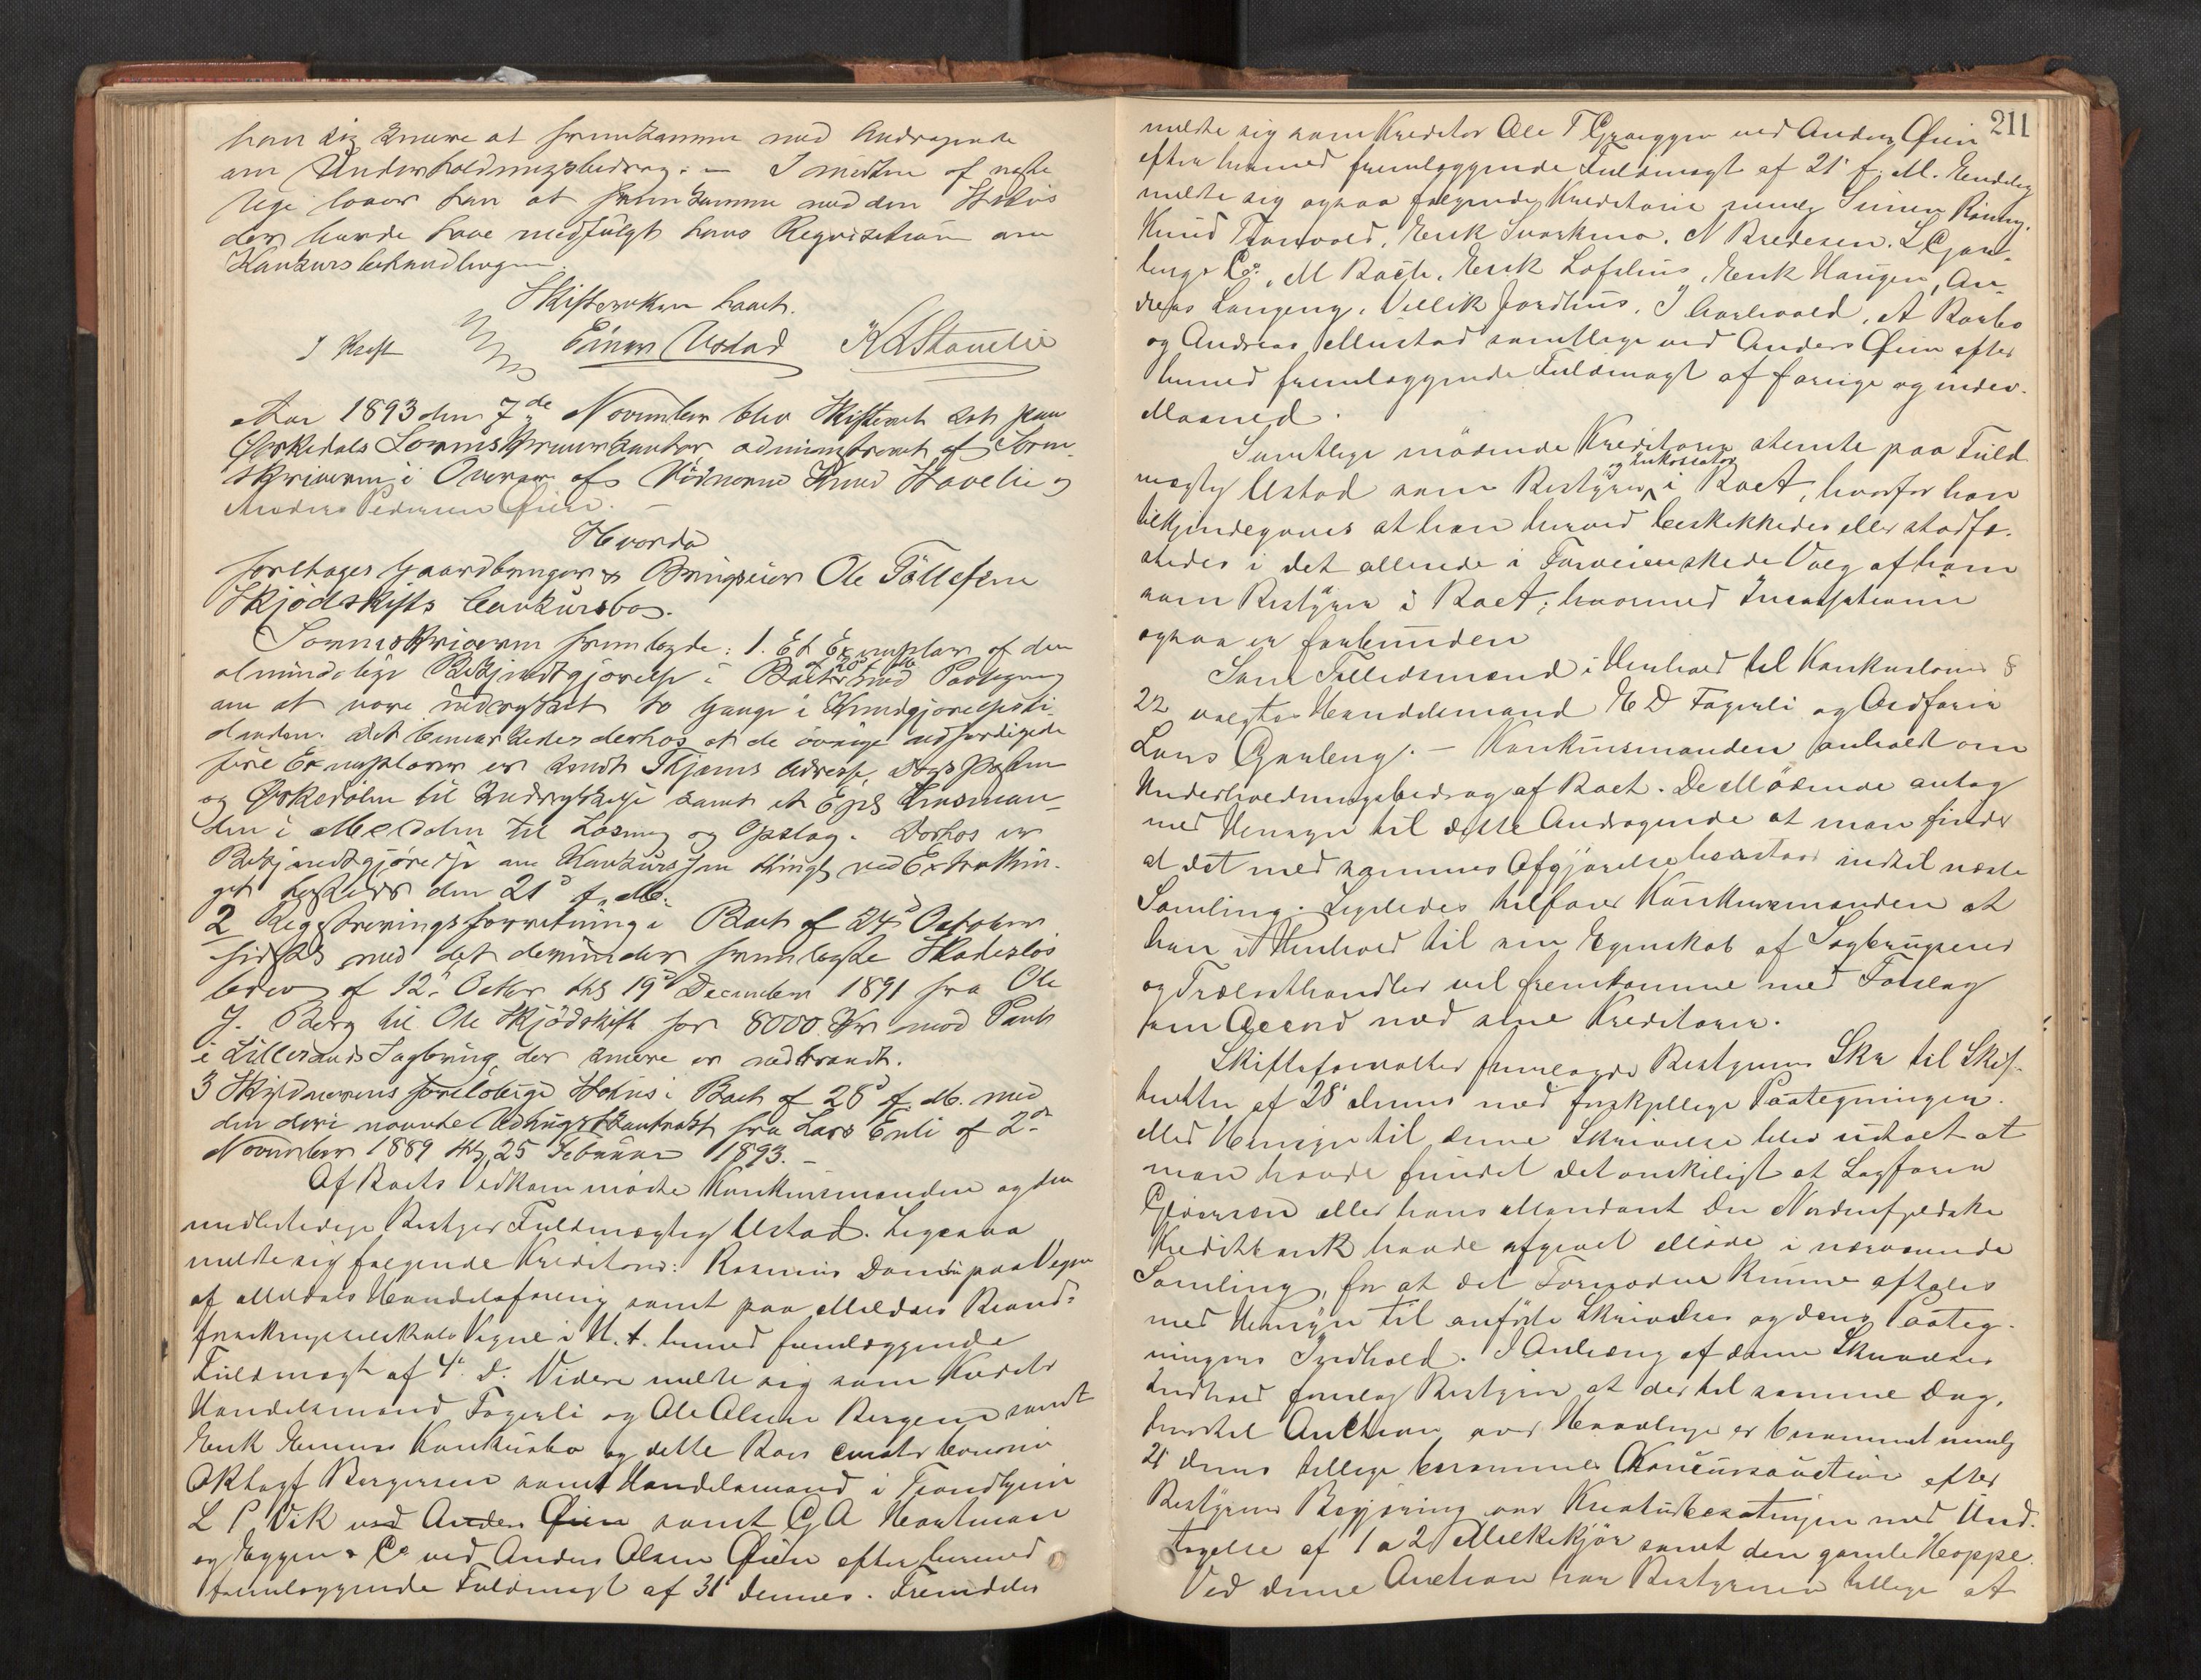 han sig senere at fremkomme med Andragende
om Underholdningsbidrag. – Imidlertid
lover han at fremkomme med den Status
der burde have medfulgt hans Requisition om
Konkursbehandlingen.
Skifteretten hævet.
I Kraft Einar Ustad K L Stavelie
Aar 1893 den 7de November blev Skifteret sat paa
Orkedals Sorenskriverkontor administreret af Soren-
skriveren i Overvær af Vidnerne Knud Stavelie og
Anders Pedersen Øien. –
Hvorda
foretages Gaardbruger & Brugseier Ole Tollefsen
Skjødskifts konkursbo.
Sorenskriveren fremlagde: 1. Et Exemplar af den
almindelige Bekjendtgjørelse i Boet af 20 f. M. med Paategning
om at være indrykket to Gange i Kundgjørelsesti-
denden. Det bemærkedes derhos at de øvrige udfærdigede
fire Exemplarer er sendt Thjems Adresse, Dagsposten
og Orkedølen til Indrykkelse samt et Expl Lensman-
den i Meldalen til Læsning og Opslag. Derhos er
Bekjendtgjørelse om Konkursen thinglyst ved Extrathin-
get den 21d f. M.
2 Registreringsforretning i Boet af 24d October
sidstl med det derunder fremlagte Skadesløs
brev af 12. Octbr thgl 19d December 1891 fra Ole
J. Berg til Ole Skjødskift for 8000 Kr mod Pant
i Lillerands Sagbrug, der senere er nedbrændt.
3 Skyldnerens foreløbige Status i Boet af 28d f. M. med
den deri nævnte Udhugstkontrakt fra Lars Enli af 2d
November 1889 thgl 25 Februar 1893. –
Af Boets Vedkom mødte Konkursmanden og den
midlertidige Bestyrer Fuldmægtig Ustad. Ligesaa
meldte sig følgende Kreditorer: Rasmus Dombu paa Vegne
af Meldals Handelsforening samt paa Meldals Brand-
forsikringsselskabs Vegne i H. t. hermed fremlæggende
Fuldmagt af 4. d. Videre meldte sig som Kreditor
Handelsmand Fagerli og Ole Olsen Bergene samt
Erik Konkursbo og dette Boes curator bonorum
Oktogf Borgersen samt Handelsmand i Trondhjem
L P Vik ved Anders Øien samt C A Hartmann
og Eggen & Co ved Anders Olsen Øien efter hermed
fremlæggende Fuldmagt af 31' dennes. Fremdeles
211
meldte sig som Kreditor Ole T Græggen ved Anders Øien
efter hermed fremlæggende Fuldmagt af 21' f. M. Endelig
meldte sig ogsaa følgende Kreditorer nemlig Simen Rønning,
Knud Tronvold, Erik Svorkmo, N Bredesen, L
bergs Co., M Bach, Erik Lofshus, Erik Haugen, An-
dreas Langeng, Vellik Jordhus, I Aarlivold, A Rorbo
og Andreas Mustad samtlige ved Anders Øien efter
hermed fremlæggende Fuldmagt af forrige og indev.
Maaned.
Samtlige mødende Kreditorer stemte paa Fuld
mægtig Ustad som Bestyrer og Inkassator i Boet, hvorfor han
tilkjendegaves at han herved beskikkedes eller stadfæ-
stedes i det allerede i Forveien skede Valg af ham
som Bestyrer i Boet; hvormed Incassationen
ogsaa er forbunden
Som Tillidsmænd i Henhold til Konkursloven §
22 valgtes Handelsmand E D Fagerli og Ordfører
Lars Garberg. – Konkursmanden anholdt om
Underholdningsbidrag af Boet. De Mødende antog
med Hensyn til dette Andragende at man finder
at det med sammes Afgjørelse henstaar indtil næste
Samling. Ligeledes tilføier Konkursmanden at
han i Henhold til sin Egenskab af Sagbrugseier
og Trælasthandler vil fremkomme med Forslag
om Accord med sine Kreditorer.
Skifteforvalter fremlagde Bestyrerens Skr til Skif-
teretten af 28' dennes med forskjellige Paategninger.
Med Hensyn til denne Skrivelse blev udtalt at
man havde fundet det ønskeligt at Sagfører
eller hans Mandant Den Nordenfjeldske
Kreditbank havde afgivet Møde i nærværende
Samling, for at det Fornødne kunne aftales
med Hensyn til anførte Skrivelses og dens Paateg-
ningers Indhold. I Anledning af denne Skrivelses
Indhold foreslog Bestyrer at der til samme Dag,
hvortil Auction over er berammet nemlig
21 dennes tillige berammes Koncursauction efter
Bestyrerens Begjæring over Kreaturbesætningen med Und-
tagelse af 1 a 2 Melkekjør samt den gamle Hoppe.
Ved denne Auction har Bestyreren tillige at